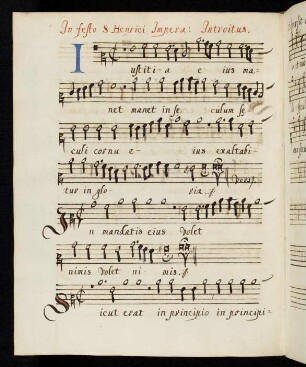 In festo S Henrici Impera: Introitus.
Iustiti-a e ius ma-
net manet in se culum se-
culi cornu e- ius exaltabi-
tur in glo- ria. Vers.
In mandatis eius volet
nimis volet ni- mis.
Sicut erat in principio in principi-